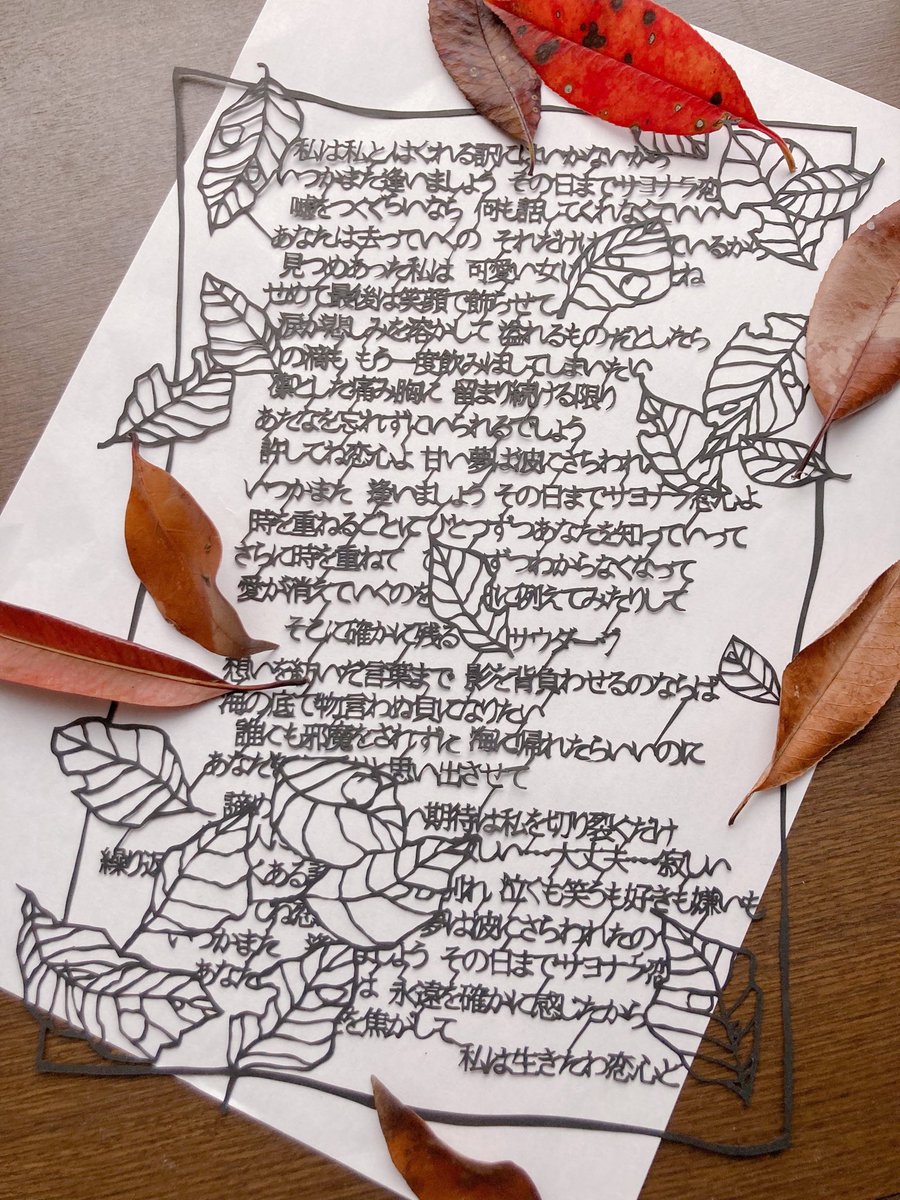 私は私とはぐれる訳にはいかないから
いつかまた逢いましょう その日までサヨナラ恋
嘘をつくぐらいなら 何も話してくれなくていい
あなたは去っていくの それだけは ているから
見つめあった私は 可愛い女じ ね
せめて最後は笑顔で飾らせて
涙が悲しみを溶かして 溢れるものだとしたら
の滴も もう一度飲みほしてしまいたい
凛とした痛み胸に 留まり続ける限り
あなたを忘れずにいられるでしょう
許してね恋心よ 甘い夢は波にさらわれ
いつかまた 逢いましょう その日までサヨナラ恋心よ
時を重ねるごとに ひとつずつあなたを知っていって
さらに時を重ねて ずつわからなくなって
愛が消えていくのを に例えてみたりして
そこに確かに残る サウダージ
想いを紡いだ言葉まで 影を背負わせるのならば
海の底で物言わぬ貝になりたい
誰にも邪魔をされずに 海に帰れたらいいのに
あなたを 思い出させて
諦め 期待は私を切り裂くだけ
しい…大丈夫…寂しい
繰り返 くある 別れ 泣くも笑うも好きも嫌いも
てね恋 夢は波にさらわれたの
いつかまた 逢 ましょう その日までサヨナラ恋
あなた は 永遠を確かに感じたから
を焦がして
私は生きたわ恋心と